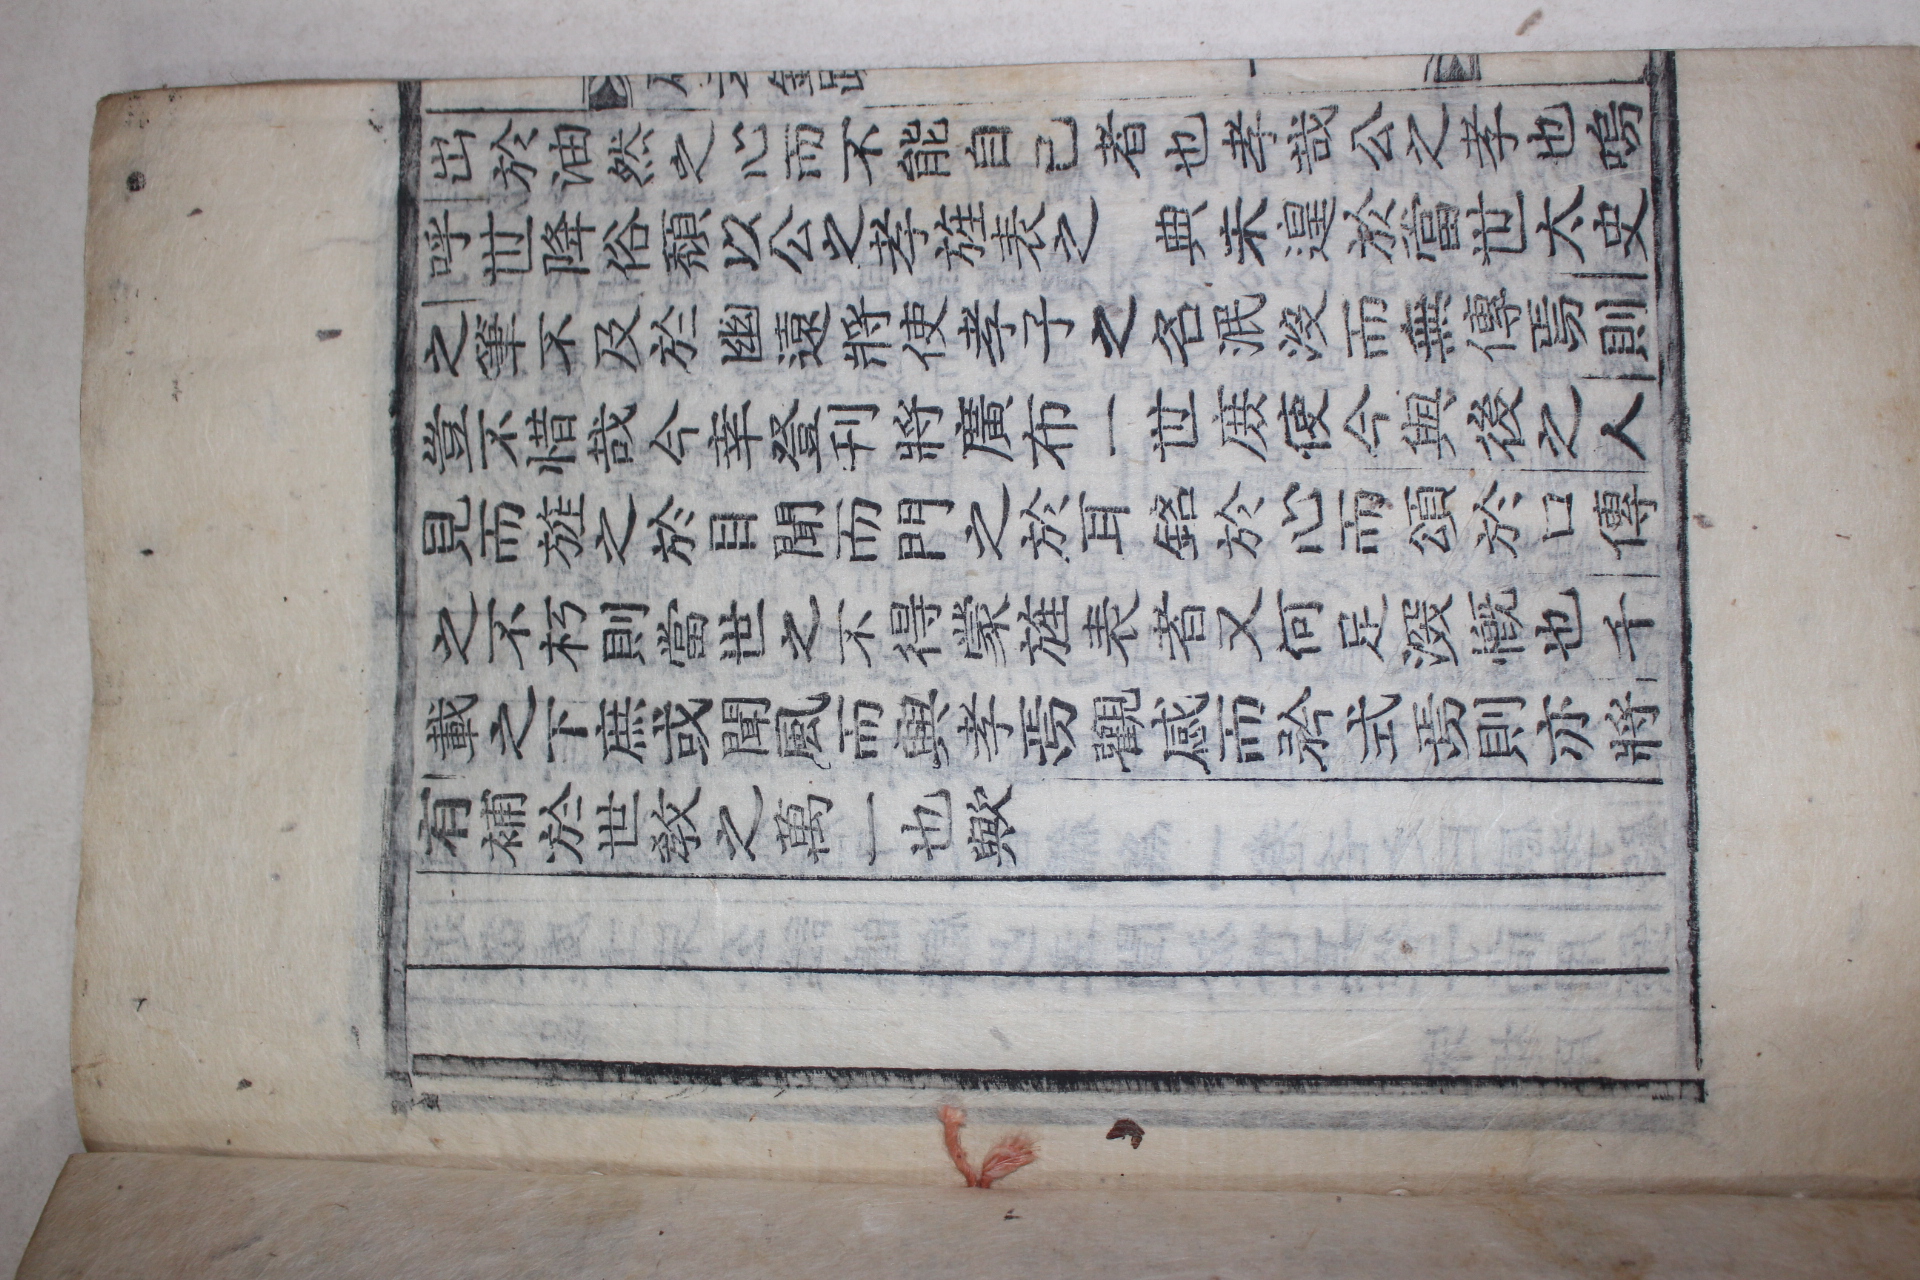 出於油然之心而不能自己者也孝哉公之孝也嗚
呼世降俗頹以公之孝旌表之　典未遑於當世太史
之筆不及於幽遠將使孝子之名泯沒而無傳焉則
豈不惜哉今幸登刊將廣布一世庶使今與後之人
見而旌之於目聞而門之於耳銘於心而頌於口傳
之不朽則當世之不得蒙旌表者又何足慨也千
載之下庶或聞風而興孝焉觀感而矜式焉則亦將
有補於世敎之萬一也歟